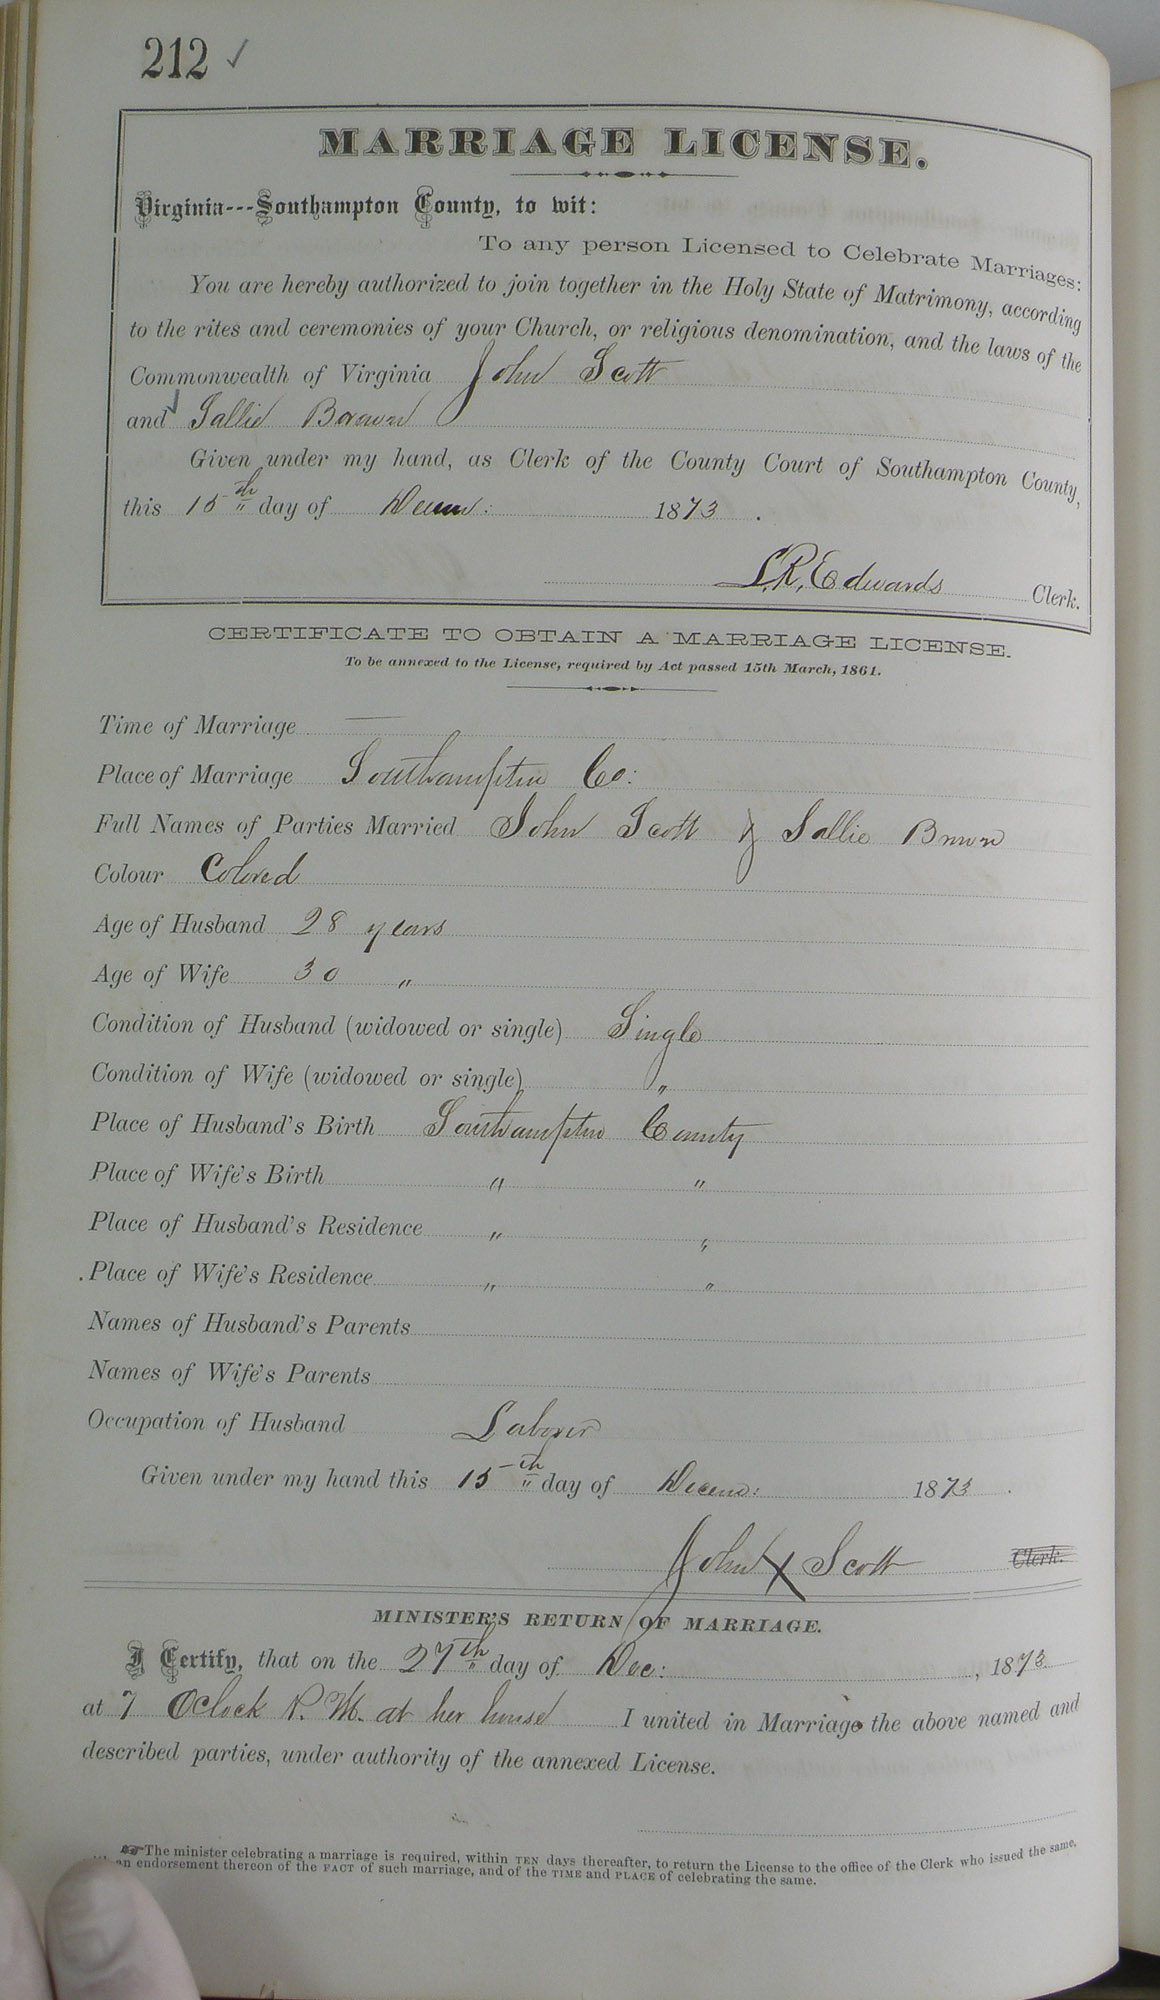 212 ✓
MARRIAGE LICENSE.
Virginia---Southampton County, to wit:
To any person Licensed to Celebrate Marriages:
You are hereby authorized to join together in the Holy State of Matrimony, according
to the rites and ceremonies of your Church, or religious denomination, and the laws of the
Commonwealth of Virginia John Scott
and Sallie Brown
Given under my hand, as Clerk of the County Court of Southampton County,
this 15th day of Decem: 1873.
L.R. Edwards Clerk.
CERTIFICATE TO OBTAIN A MARRIAGE LICENSE.
To be annexed to the License, required by Act passed 15th March, 1861.
Time of Marriage —
Place of Marriage Southampton Co:
Full Names of Parties Married John Scott & Sallie Brown
Colour Colored
Age of Husband 28 years
Age of Wife 30 "
Condition of Husband (widowed or single) Single
Condition of Wife (widowed or single) "
Place of Husband's Birth Southampton County
Place of Wife's Birth " "
Place of Husband's Residence " "
Place of Wife's Residence " "
Names of Husband's Parents
Names of Wife's Parents
Occupation of Husband Laborer
Given under my hand this 15th day of Decem: 1873.
John X Scott Clerk.
MINISTER'S RETURN OF MARRIAGE.
I Certify, that on the 27th day of Dec: , 1873
at 7 Oclock P. M. at her house I united in Marriage the above named and
described parties, under authority of the annexed License.
☞The minister celebrating a marriage is required, within TEN days thereafter, to return the License to the office of the Clerk who issued the same,
an endorsement thereon of the FACT of such marriage, and of the TIME and PLACE of celebrating the same.